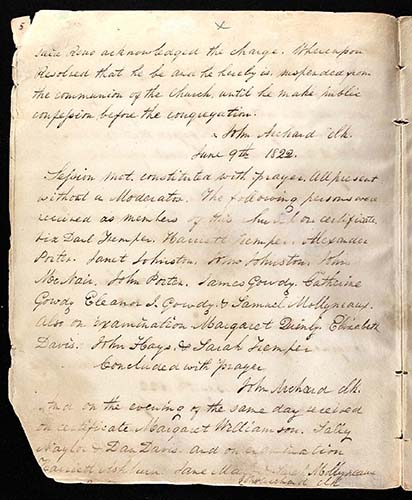 5
said Reno acknowledged the charge. Whereupon
Resolved that he be and he hereby is, suspended from
the communion of the Church, until he make public
confession before the congregation.
John Archard clk.
June 9th 1822.
Session met. constituted with prayer. All present
without a Moderator. The following persons were
received as members of this on certificate,
Kemper. Harriett Kemper. Alexander
Porter. Janet Johnston. Johnston. John
McNair. John Porter. James Gowdy. Catherine
Gowdy Eleanor J. Gowdy. & Samuel Mollyneaus.
also on examination Margaret Elizabeth
Davis. John Hays. & Sarah Kemper
Concluded with prayer
John Archard clk.
And on the evening of the same day received
on certificate Margaret Williamson. Sally
Naylor & Dan Davis. and on examination
Harriett Jane Mollyneaux
John Archard clk